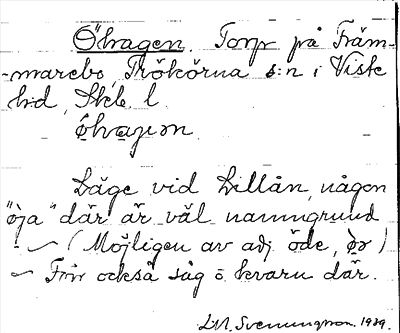 Öhagen. Torp på Främ-
marebo, Trökörna s:n i Viste
hd, Skbl. l.
Läge vid Lillån, någon
"öja" där är väl namngrund
- (Möjligen av adj. öde, )
- Förr också såg o. kvarn där.
L.M. Svenungsson. 1929.